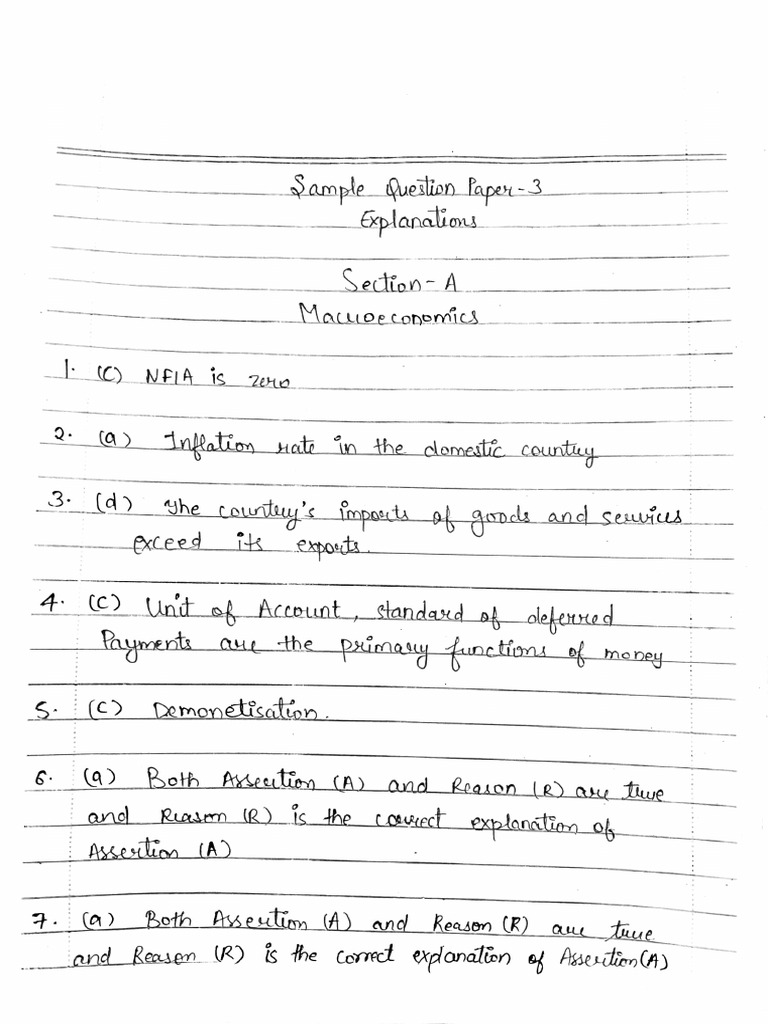 Sample Question Paper-3
Explanations
Section-A
Macroeconomics
1. (C) NFIA is zero
2. (a) Inflation rate in the domestic country
3. (d) The country's imports of goods and services
exceed its exports.
4. (C) Unit of Account, standard of deferred
Payments are the primary functions of money
5. (C) Demonetisation.
6. (a) Both Assertion (A) and Reason (R) are true
and Reason (R) is the correct explanation of
Assertion (A)
7. (a) Both Assertion (A) and Reason (R) are true
and Reason (R) is the correct explanation of Assertion (A)